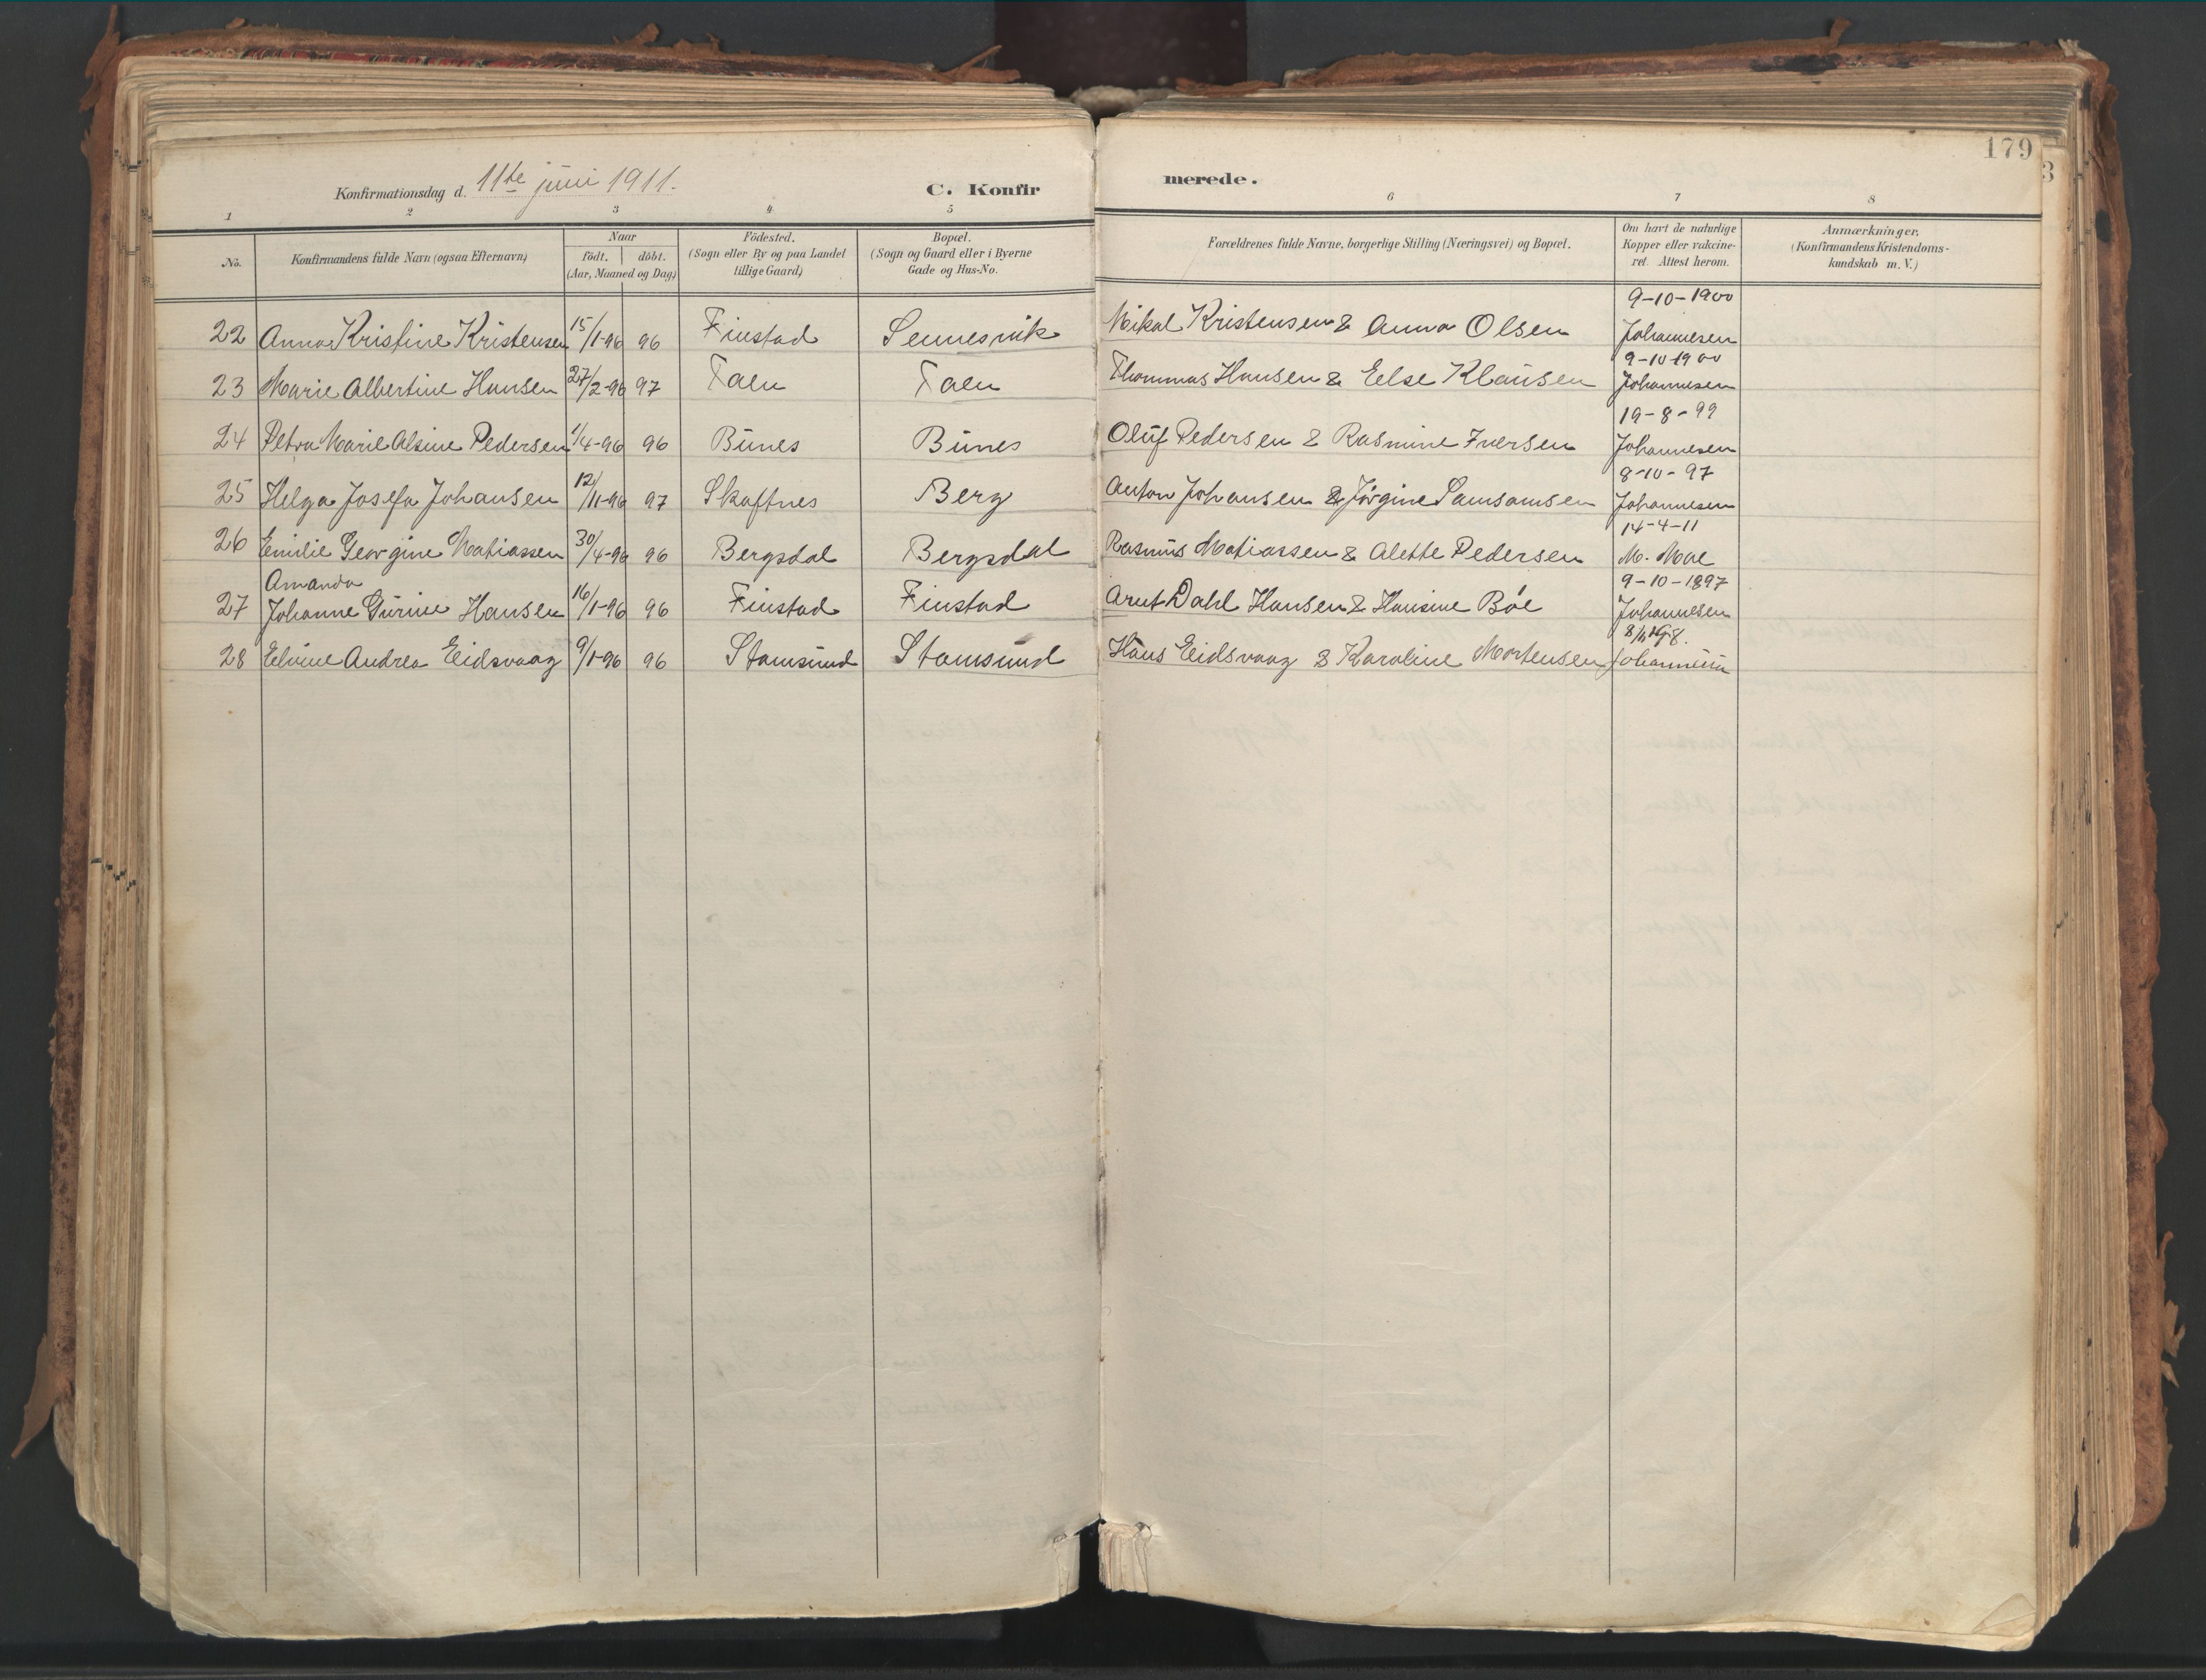 179
3
Konfirmationsdag d. 11te juni 1911.
C. Konfir
merede.
1 2 3 4 5 6 7 8
No.
Konfirmandens fulde Navn (ogsaa Efternavn)
Naar
födt. döbt.
(Aar, Maaned og Dag)
Födested.
(Sogn eller By og paa Landet
tillige Gaard)
Bopæl.
(Sogn og Gaard eller i Byerne
Gade og Hus-No.
Forældrenes fulde Navne, borgerlige Stilling (Næringsvei) og Bopæl.
Om havt de naturlige
Kopper eller vakcine-
ret. Attest herom.
Anmærkninger.
(Konfirmandens Kristendoms-
kundskab m. V.)
9-10-1900
22 Anna Kristine Kristensen 15/1-96 96 Finstad Sennesvik Mikal Kristensen & Anna Olsen Johannesen
9-10-1900
23 Marie Albertine Hansen 27/2-96 97 Taen Taen Thommas Hansen & Else Klausen Johannesen
19-8-99
24 Petra Marie Alsine Pedersen 1/4-96 96 Bunes Bunes Oluf Pedersen & Rasmine Iversen Johannesen
8-10-97
25 Helga Josefa Johansen 12/11-96 97 Skaftnes Berg Anton Johansen & Jörgine Samsonsen Johannesen
14-4-11
26 Emilie Georgine Matiassen 30/4-96 96 Bergsdal Bergsdal Rasmus Matiassen & Alette Pedersen M. Moe
Amanda
9-10-1897
27 Johanne Gurine Hansen 16/1-96 96 Finstad Finstad Arnt Dahl Hansen & Hansine Böe Johannesen
28 Elvine Andrea Eidsvaag 9/1-96 96 Stamsund Stamsund Hans Eidsvaag & Karoline Mortensen Johannesen